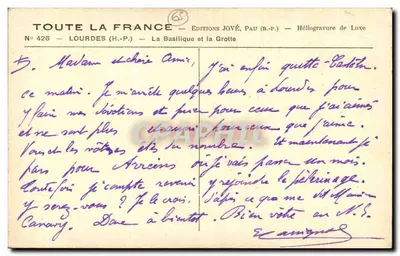 TOUTE LA FRANCE — EDITIONS JOVÉ, PAU (B.-P.) — Héliogravure de Luxe
N° 426 — LOURDES (H.-P.) — La Basilique et la Grotte
65
Madame et chère Amie,
J'ai enfin quitté
ce matin. Je m'arrête quelques heures à Lourdes pour
y faire mes dévotions et prier pour ceux que j'ai aimés
et ne sont plus pour ceux que j'aime.
Vous et les vôtres êtes du nombre. et maintenant je
pars pour où je vais passer un mois.
Toutefois je compte revenir y rejoindre le pèlerinage
y serez-vous ? Je le crois. d'après ce que me dit
Donc à bientôt. Bien vôtre en N. S.